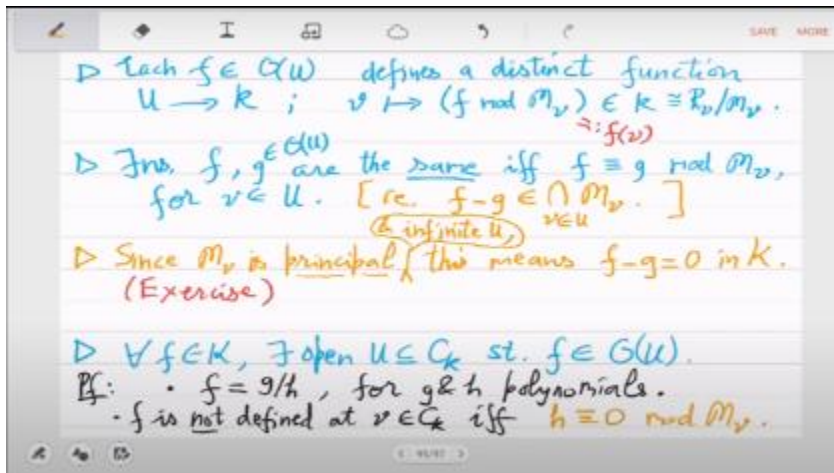 SAVE MORE
▷ Each f ∈ O(U) defines a distinct function
U → k ; v ↦ (f mod m_v) ∈ k ≅ R_v/m_v .
=: f(v)
▷ Fns. f, g ∈ O(U) are the same iff f ≡ g mod m_v,
for v ∈ U. [ie. f-g ∈ ∩_{v∈U} m_v . ]
& infinite U,
▷ Since m_v is principal, this means f-g=0 in K.
(Exercise)
▷ ∀ f∈K, ∃ open U ⊆ C_K st. f ∈ O(U).
Pf: · f = g/h , for g & h polynomials.
· f is not defined at v ∈ C_K iff h ≡ 0 mod m_v .